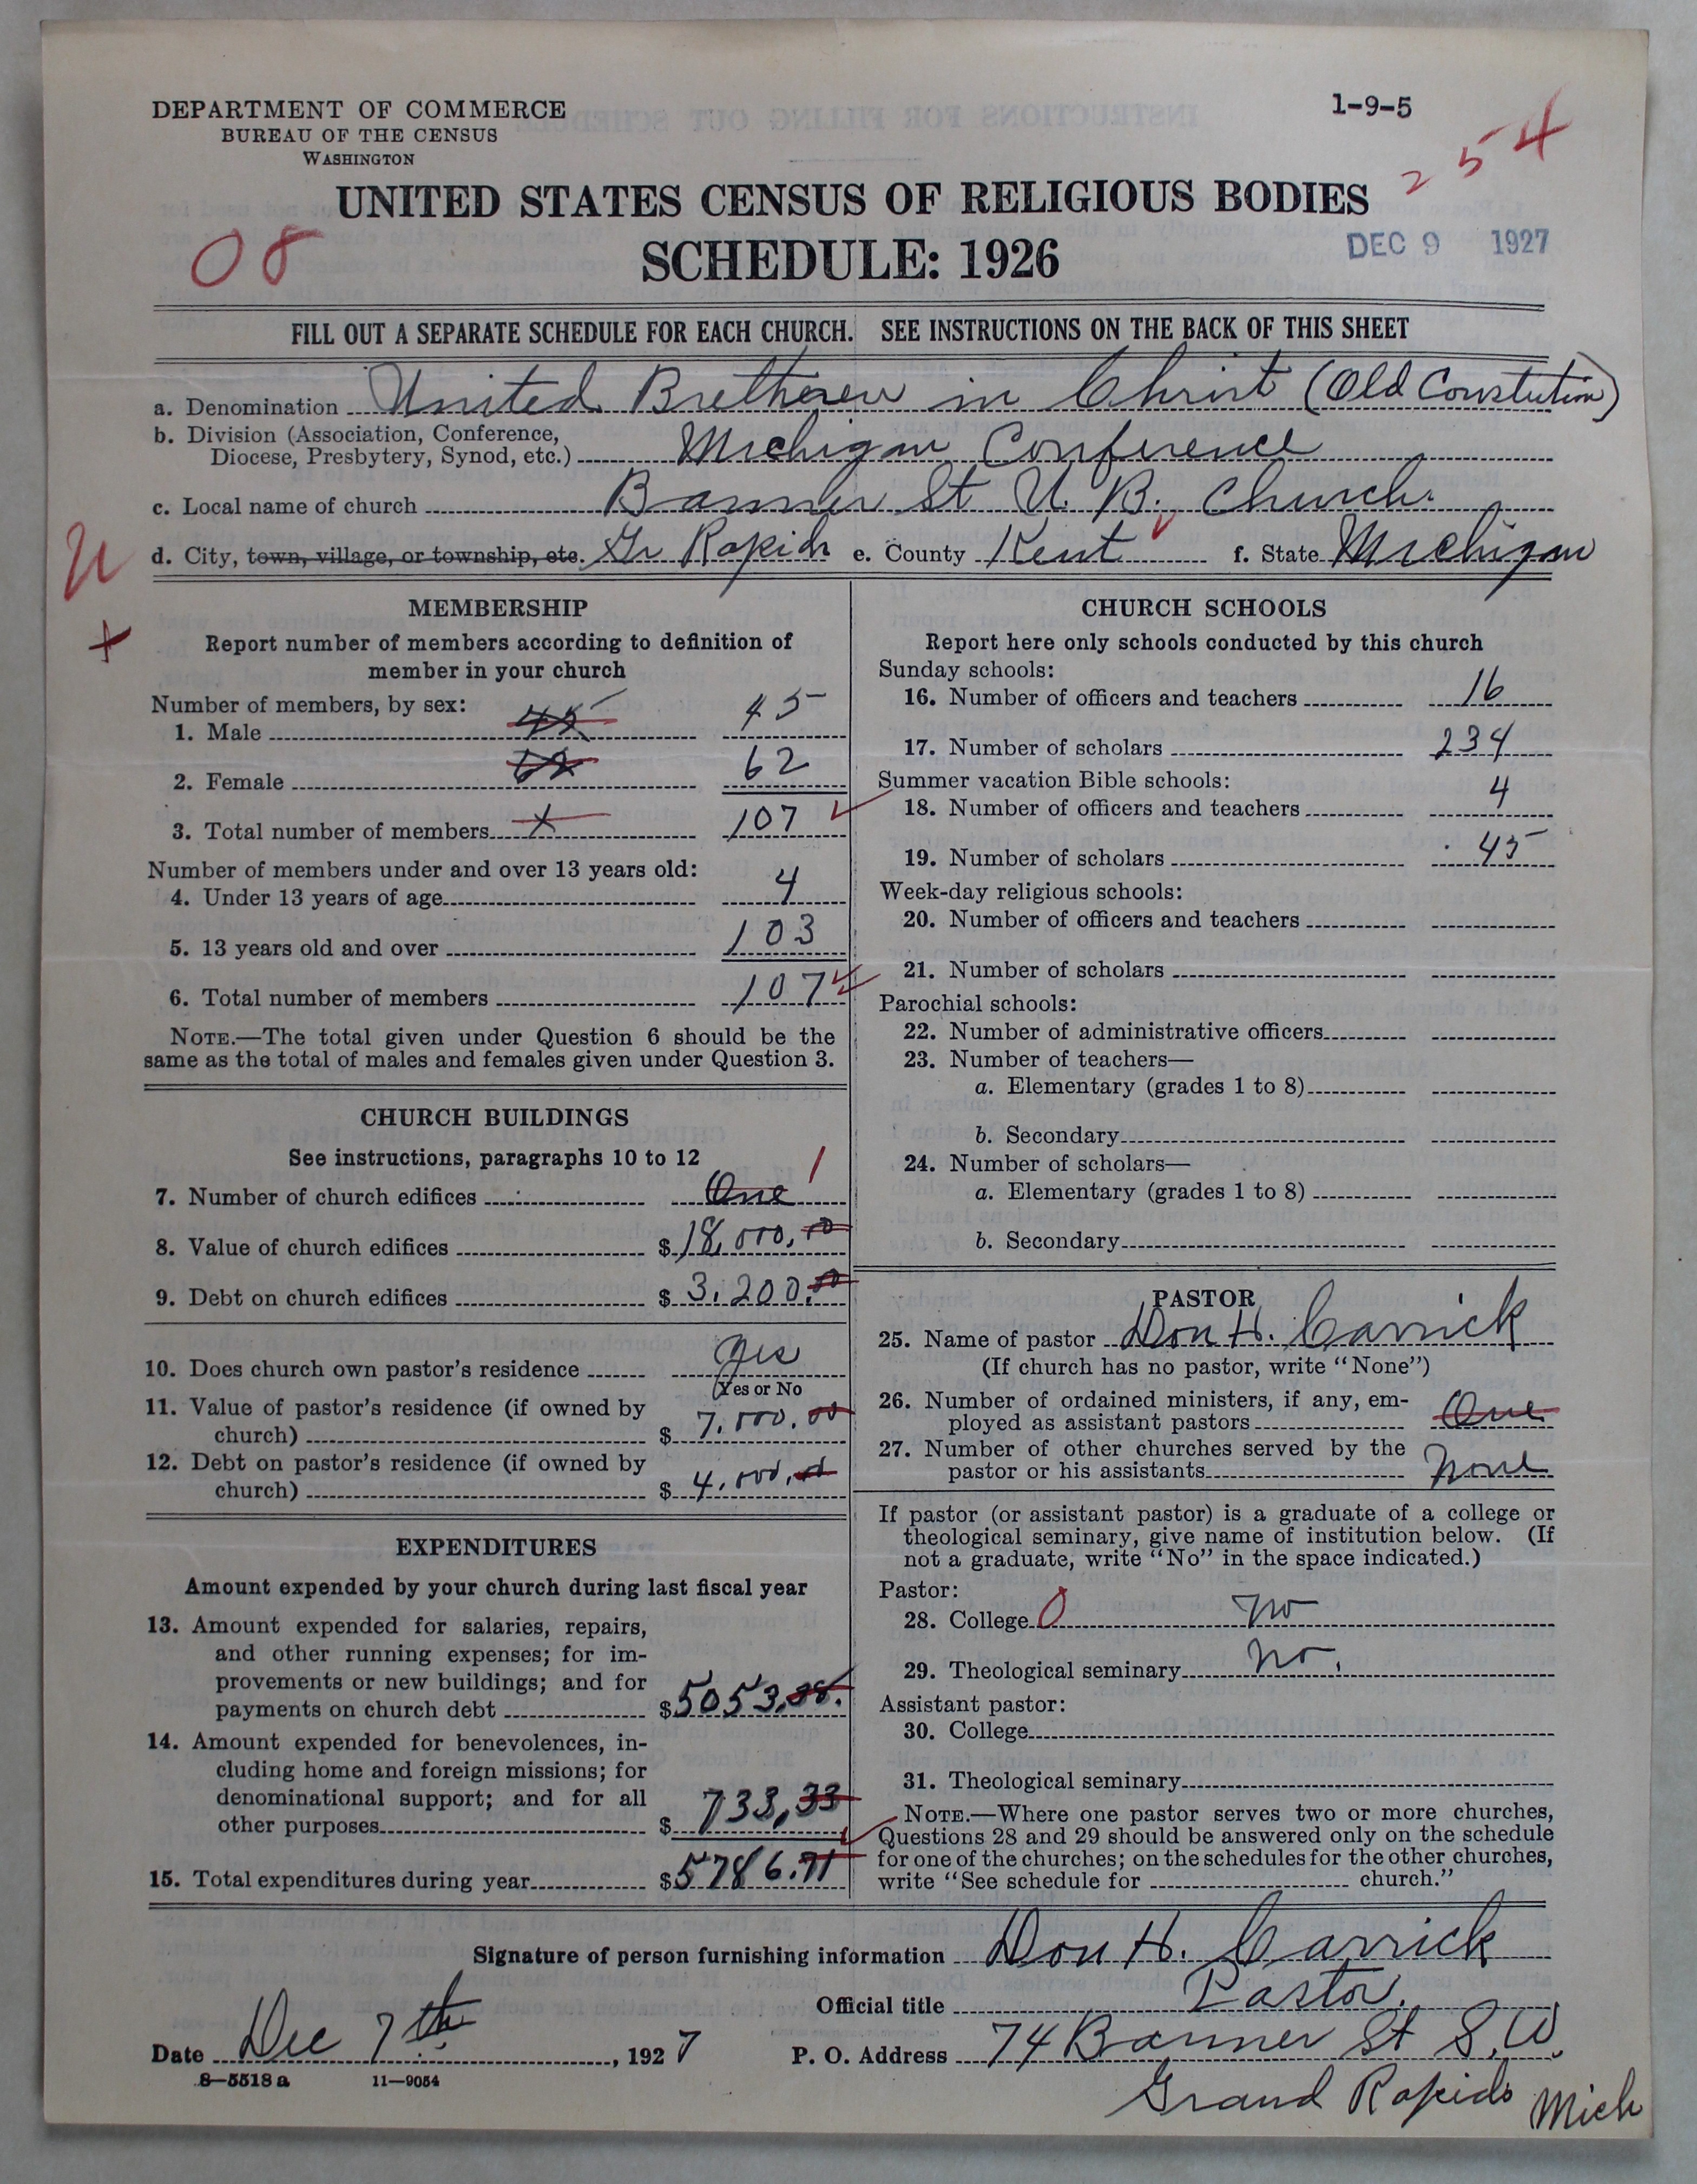 DEPARTMENT OF COMMERCE
BUREAU OF THE CENSUS
WASHINGTON
1-9-5
254
UNITED STATES CENSUS OF RELIGIOUS BODIES
08
SCHEDULE: 1926
DEC 9 1927
FILL OUT A SEPARATE SCHEDULE FOR EACH CHURCH. SEE INSTRUCTIONS ON THE BACK OF THIS SHEET
a. Denomination United Bretheren in Christ (Old Constution)
b. Division (Association, Conference,
Diocese, Presbytery, Synod, etc.) Michigan Conference
c. Local name of church Banner St U. B. Church.
d. City, town, village, or township, etc. Gr Rapids e. County Kent f. State Michigan
MEMBERSHIP
Report number of members according to definition of
member in your church
Number of members, by sex:
1. Male 45 45
2. Female 62 62
3. Total number of members x 107
Number of members under and over 13 years old:
4. Under 13 years of age 4
5. 13 years old and over 103
6. Total number of members 107
NOTE.—The total given under Question 6 should be the
same as the total of males and females given under Question 3.
CHURCH BUILDINGS
See instructions, paragraphs 10 to 12
7. Number of church edifices One 1
8. Value of church edifices $ 18,000.00
9. Debt on church edifices $ 3,200.00
10. Does church own pastor's residence Yes
Yes or No
11. Value of pastor's residence (if owned by
church) $ 7,000.00
12. Debt on pastor's residence (if owned by
church) $ 4,000.00
EXPENDITURES
Amount expended by your church during last fiscal year
13. Amount expended for salaries, repairs,
and other running expenses; for im-
provements or new buildings; and for
payments on church debt $ 5053.38.
14. Amount expended for benevolences, in-
cluding home and foreign missions; for
denominational support; and for all
other purposes $ 733,33
15. Total expenditures during year $ 5786.71
CHURCH SCHOOLS
Report here only schools conducted by this church
Sunday schools:
16. Number of officers and teachers 16
17. Number of scholars 234
Summer vacation Bible schools:
18. Number of officers and teachers 4
19. Number of scholars 45
Week-day religious schools:
20. Number of officers and teachers
21. Number of scholars
Parochial schools:
22. Number of administrative officers
23. Number of teachers—
a. Elementary (grades 1 to 8)
b. Secondary
24. Number of scholars—
a. Elementary (grades 1 to 8)
b. Secondary
PASTOR
25. Name of pastor Don H. Carrick
(If church has no pastor, write "None")
26. Number of ordained ministers, if any, em-
ployed as assistant pastors One
27. Number of other churches served by the
pastor or his assistants None
If pastor (or assistant pastor) is a graduate of a college or
theological seminary, give name of institution below. (If
not a graduate, write "No" in the space indicated.)
Pastor:
28. College 0 No
29. Theological seminary No.
Assistant pastor:
30. College
31. Theological seminary
NOTE.—Where one pastor serves two or more churches,
Questions 28 and 29 should be answered only on the schedule
for one of the churches; on the schedules for the other churches,
write "See schedule for church."
Signature of person furnishing information Don H. Carrick
Official title Pastor.
Date Dec 7th, 1927 P. O. Address 74 Banner St S.W.
8—5518 a 11—9054
Grand Rapids Mich